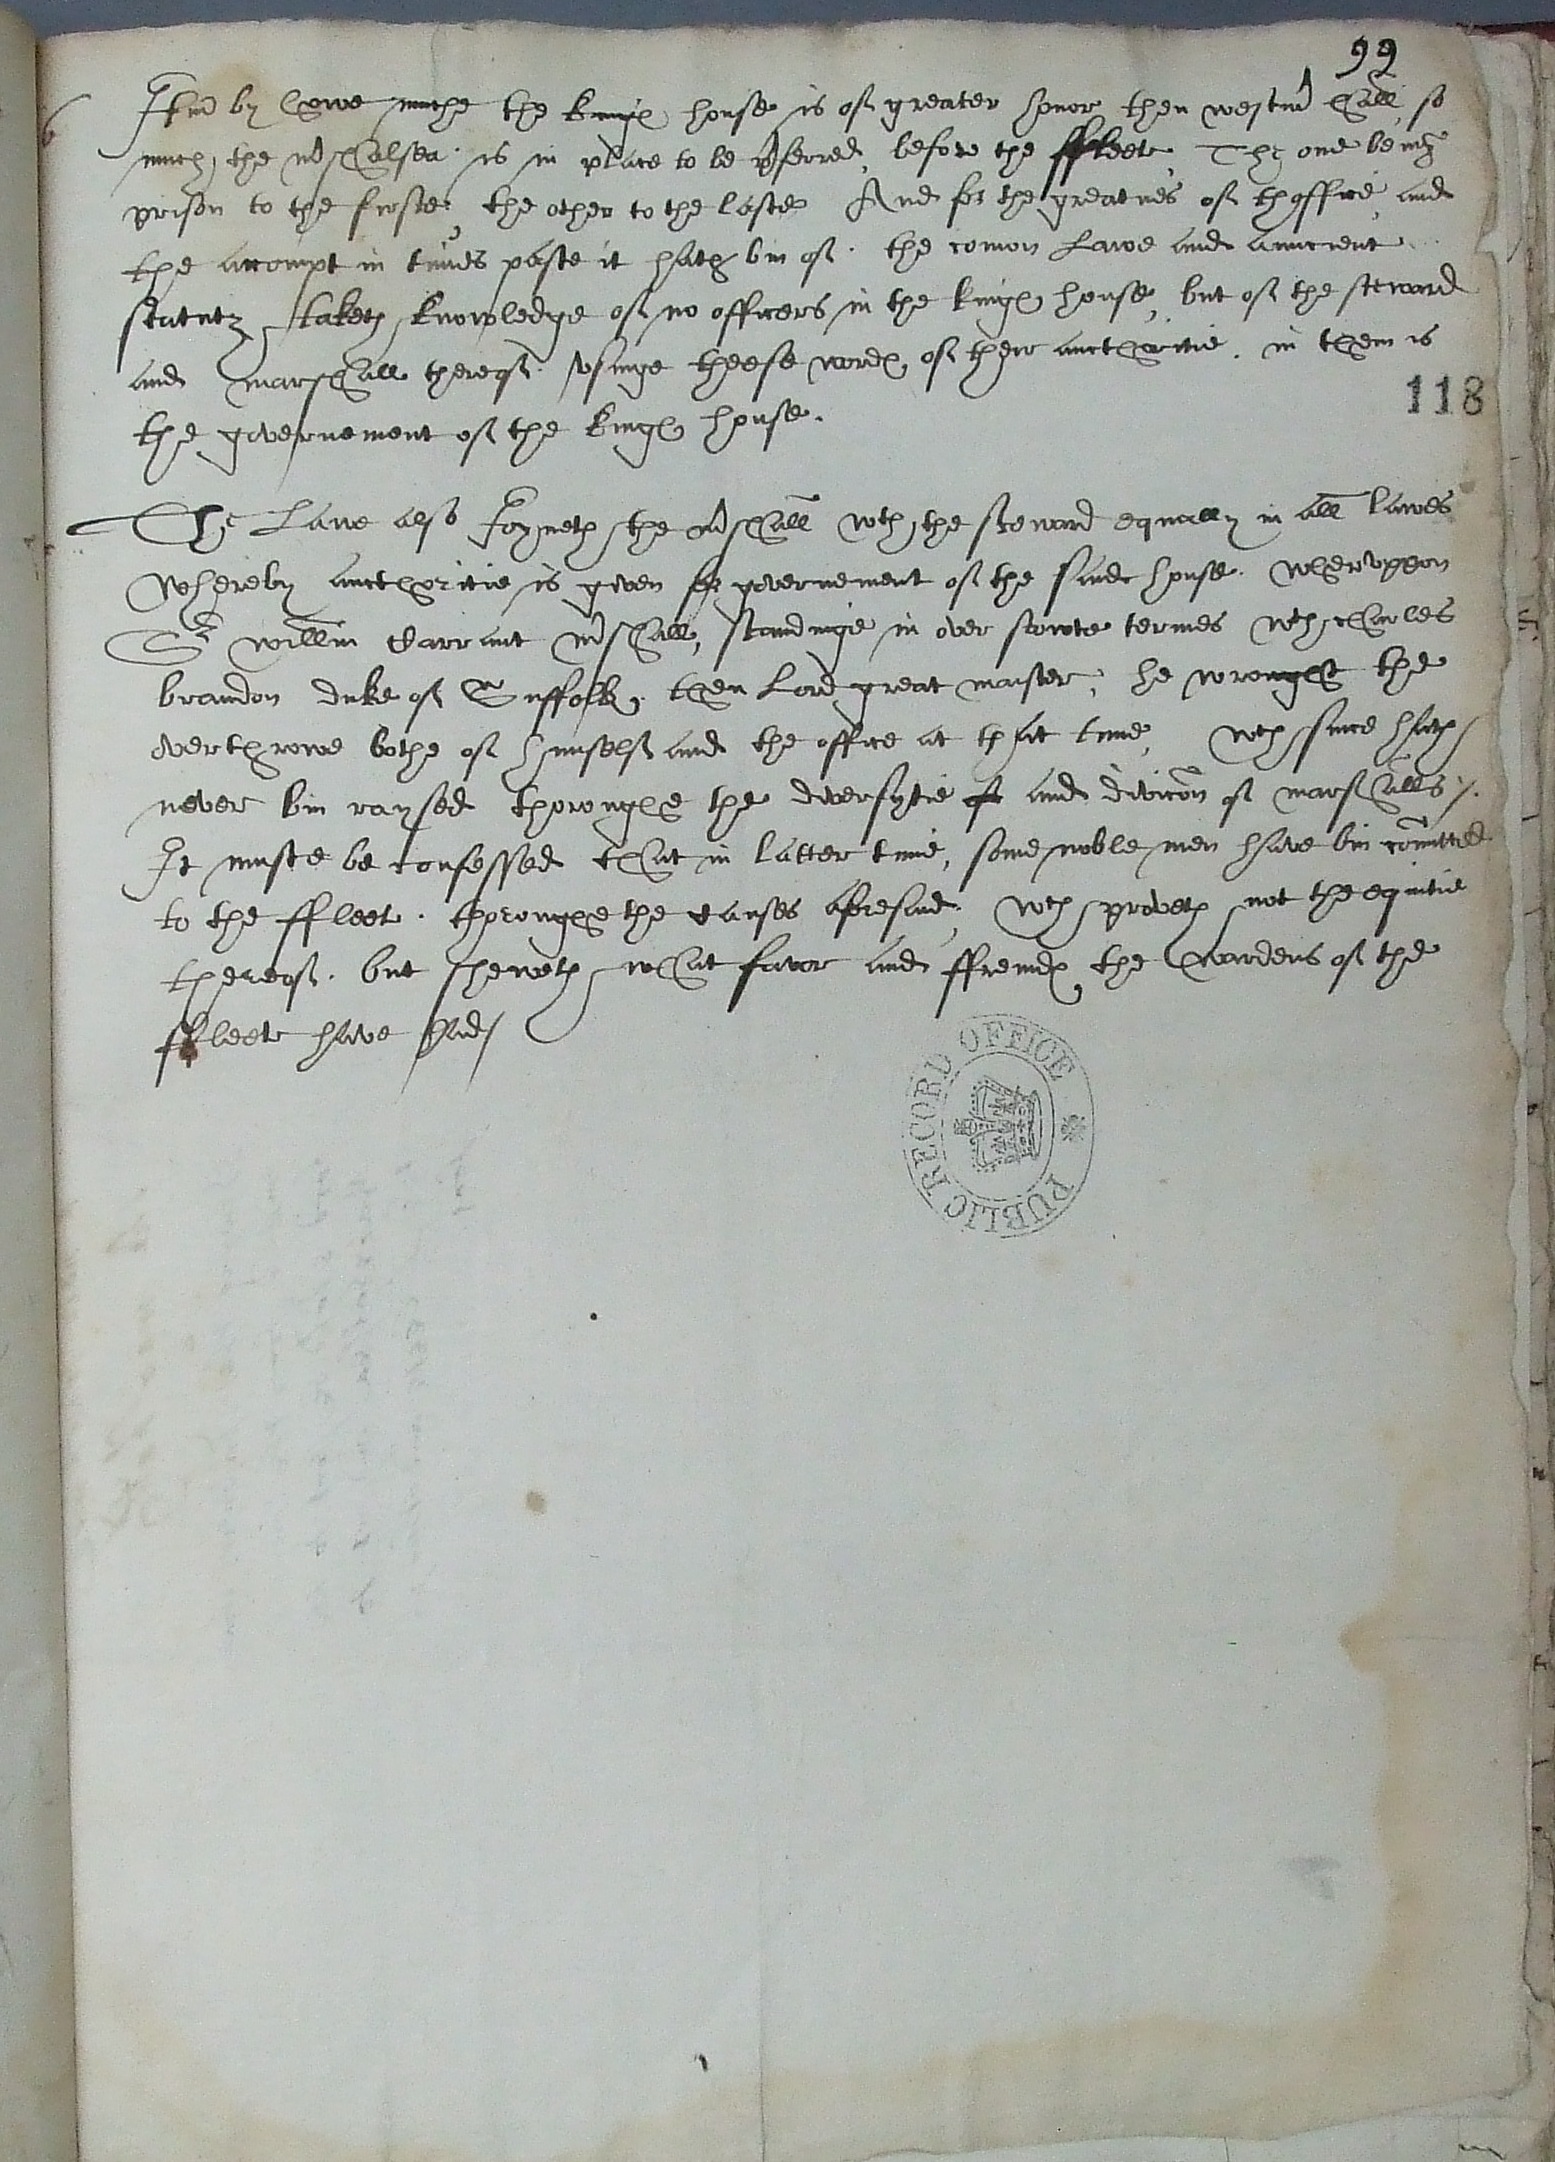 99
Itm by howe muche the kings house is of greater honor then westmr hall, so
much the mrshalsea is in place to be pferred before the ffleete, The one beinge
prison to the firste, the other to the laste And for the greatnes of thoffice, and
the accompt in times paste it hath bin of. the comon Lawe and auncient
statutz taketh knowledge of no officers in the kings house, but of the steward
and marshall thereof. vsinge theese words of their aucthoritie. in them is
118
the governement of the kings house.
The Lawe also Joyneth the mrshall wth the steward equally in all lawes
whereby aucthoritie is given for governement of the saide house. whervppon
Sr willm mrshall, standinge in over termes wth charles
brandon duke of Suffolk, then Lord great maister, he wrought the
overthrowe bothe of himself and the office at that time, wch since hath
never bin raysed thoroughe the diversytie of and divicon of marshalls /.
It muste be confessed that in latter time, some noble men have bin comitted
to the ffleet. thoroughe the causes aforesaid, wch proveth not the equitie
thereof. but sheweth what favor and ffreinds the wardens of the
ffleete have had/
PUBLIC RECORD OFFICE